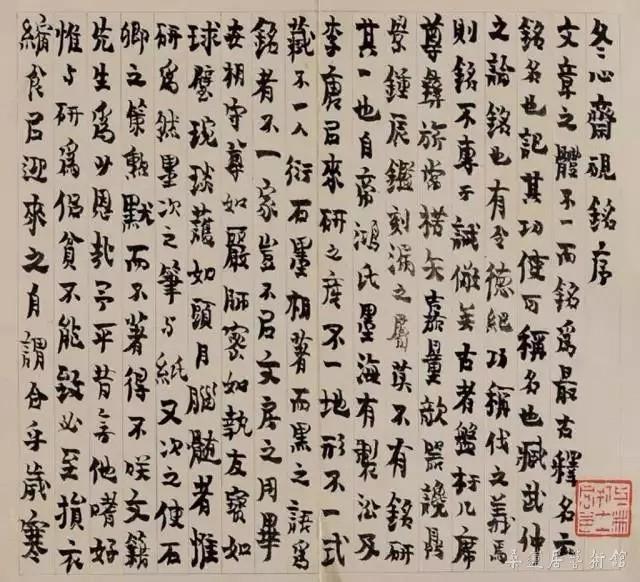 冬心齋硯銘序
文章之體不一而銘為最古釋名云
銘名也記其功使可稱名也臧武仲
之論銘也有令德紀功稱伐之義焉
則銘不專于誡儆矣古者盤杅几席
尊彝旂常楛矢嘉量欹器讒鼎
景鐘辰鑑刻漏之屬莫不有銘研
其一也自帝鴻氏墨海有製訟及
李唐呂來研之產不一地形不一式
藏不一人衍石墨相著而黑之語為
銘者不一家豈不呂文房之用畢
世相守尊如嚴師密如執友寶如
球璧琬琰護如頭目腦髓者惟
研為然墨次之筆与紙又次之使石
鄉之策勳默而不著得不唉文籍
先生為少恩哉予平昔無他嗜好
惟与研為侶貧不能致必至損衣
縮食呂迎來之自謂合乎歲寒
桑蓮居藝術館